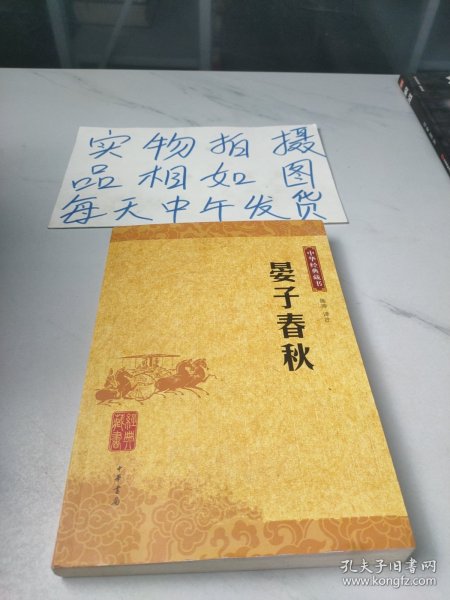 实物拍摄
品相如图
每天中午发货
中华经典藏书
晏子春秋
陈涛 译注
經典
藏書
中华书局
孔夫子旧书网
www.kongfz.com